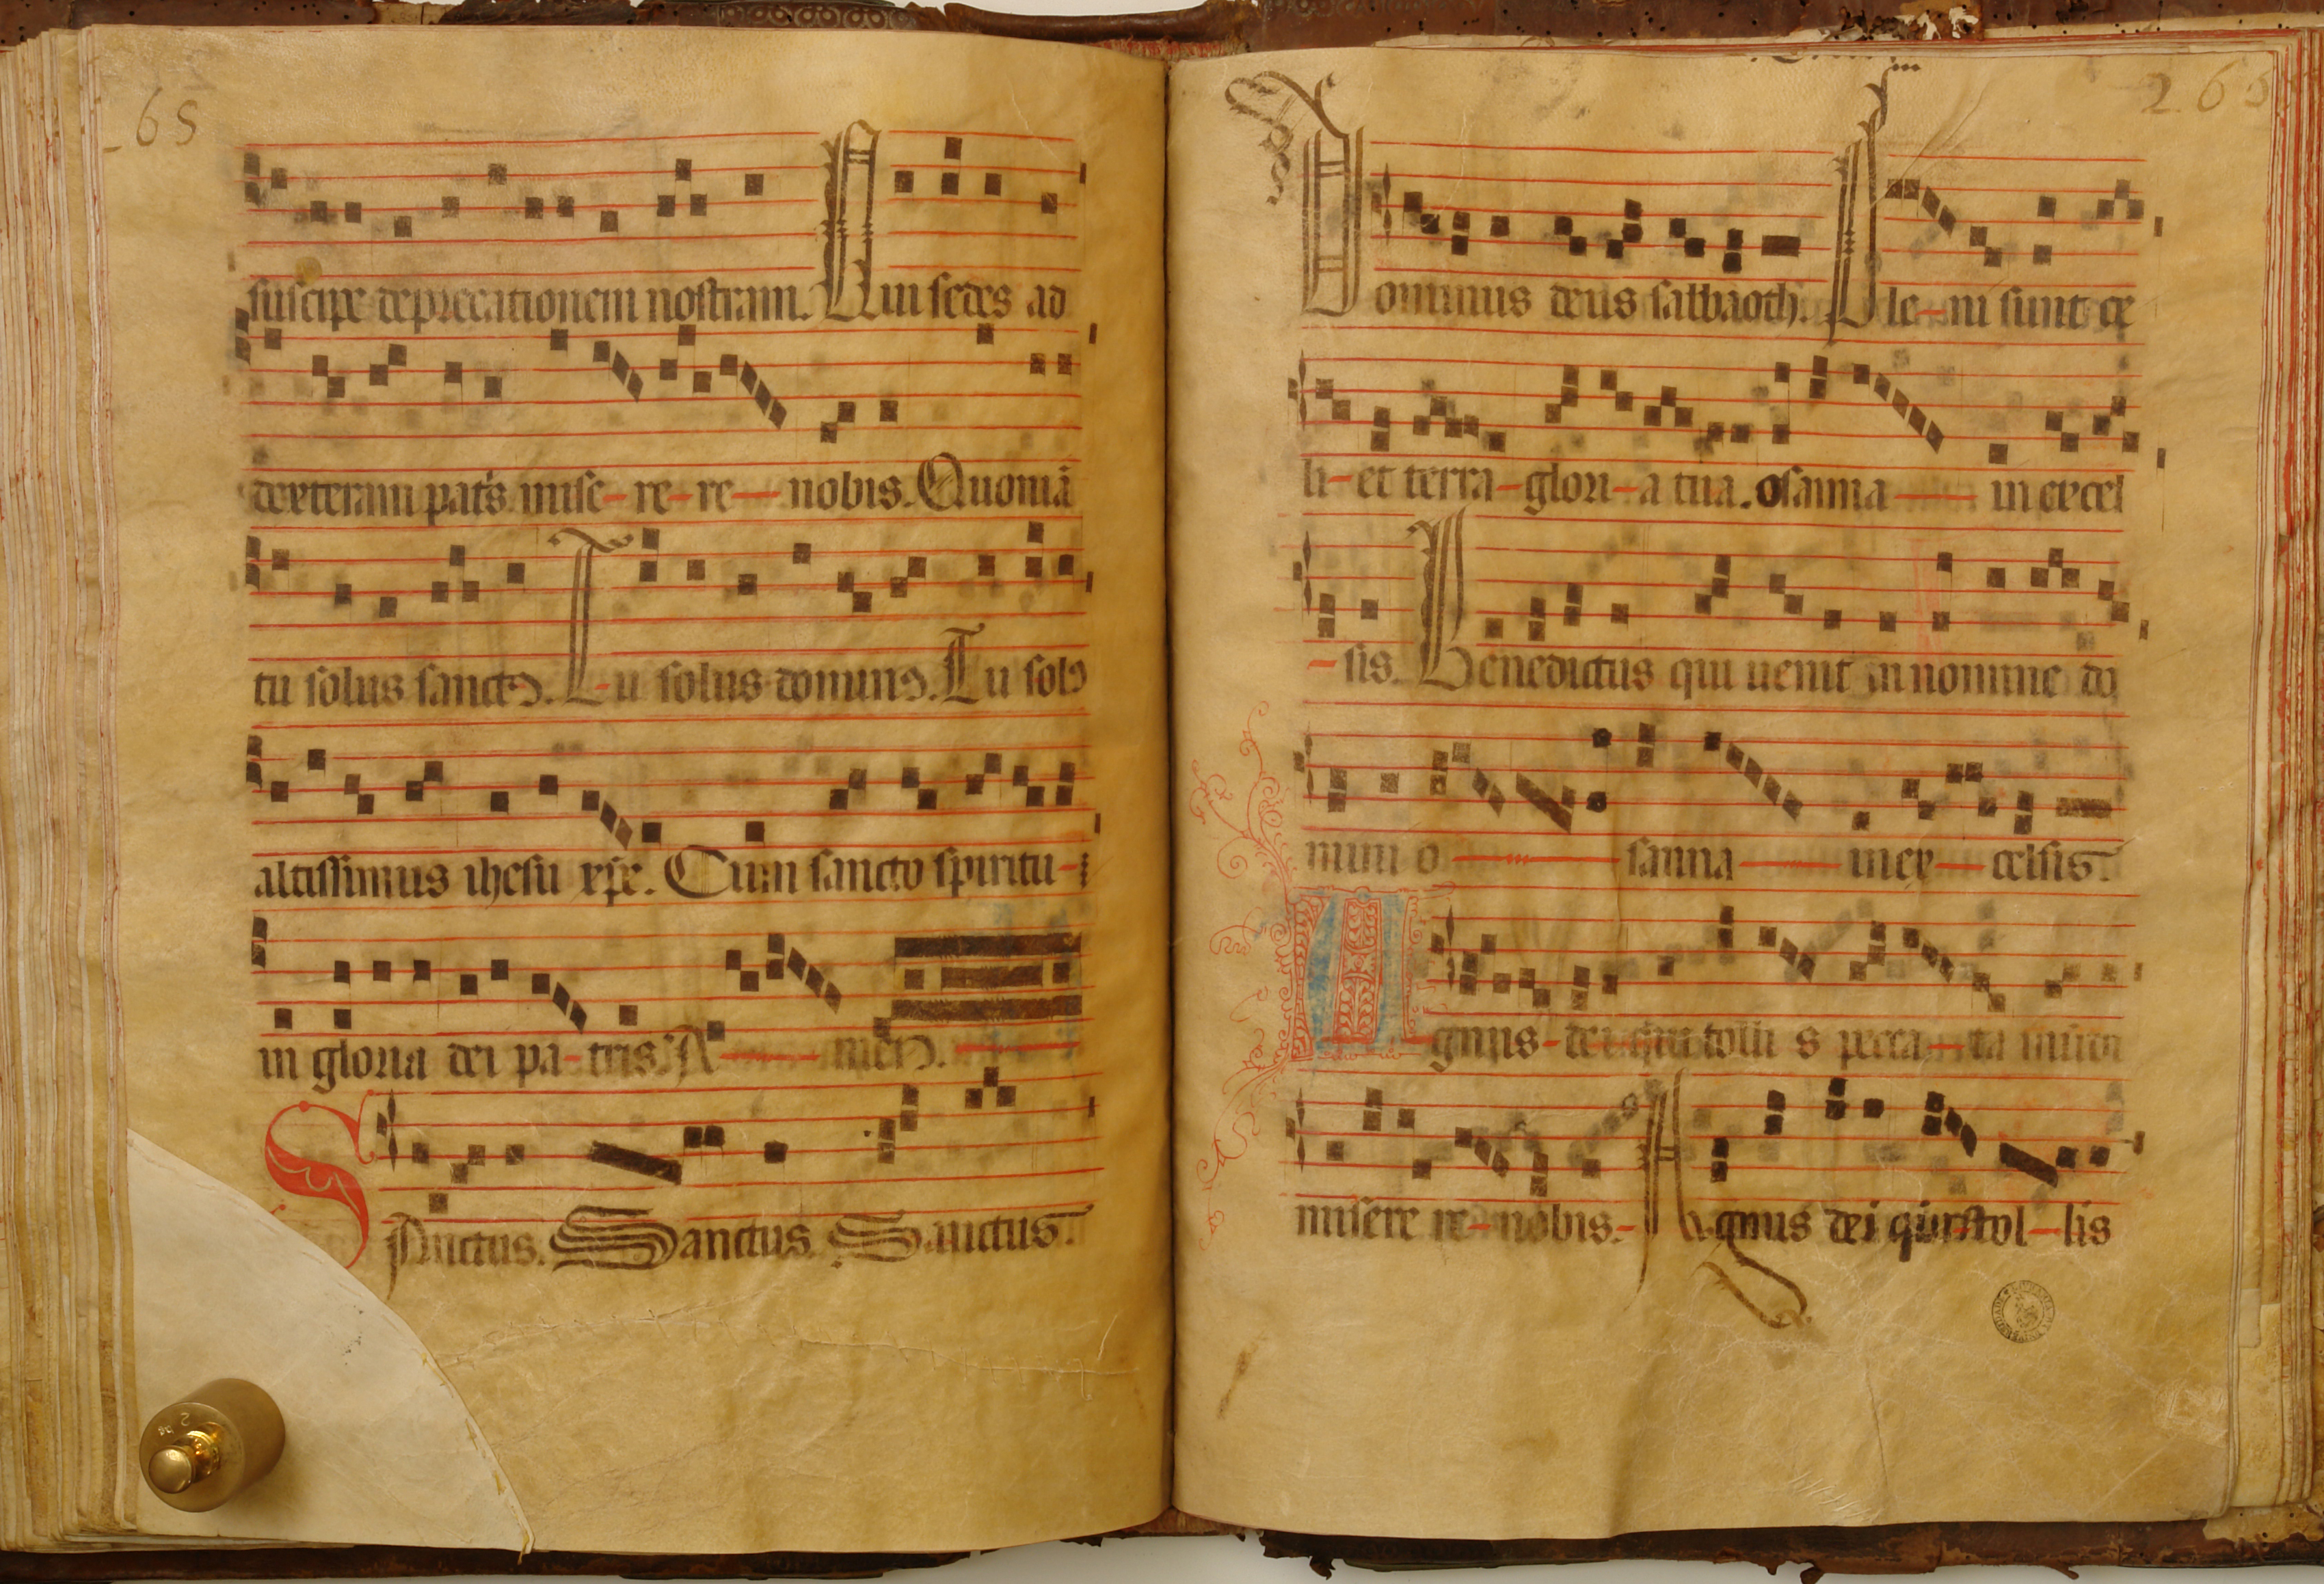 65
suscipe deprecationem nostram. Qui sedes ad
dexteram pat's mise-re-re-nobis. Quoniā
tu solus sanctꝰ. Tu solus dominꝰ. Tu solꝰ
altissimus ihesu xpe. Cum sancto spiritu-
in gloria dei pa-tris. A-men.
SAnctus. Sanctus. Sanctus.
266
Dominus deus sabbaoth. Ple-ni sunt ce
li-et terra-glori-a tua. osanna-in excel
-sis. Benedictus qui uenit in nomine do
mini o-sanna-in ex-celsis.
Agnus-dei qui tolli s pecca-ta mundi
misere re-nobis.- Agnus dei qui tol-lis